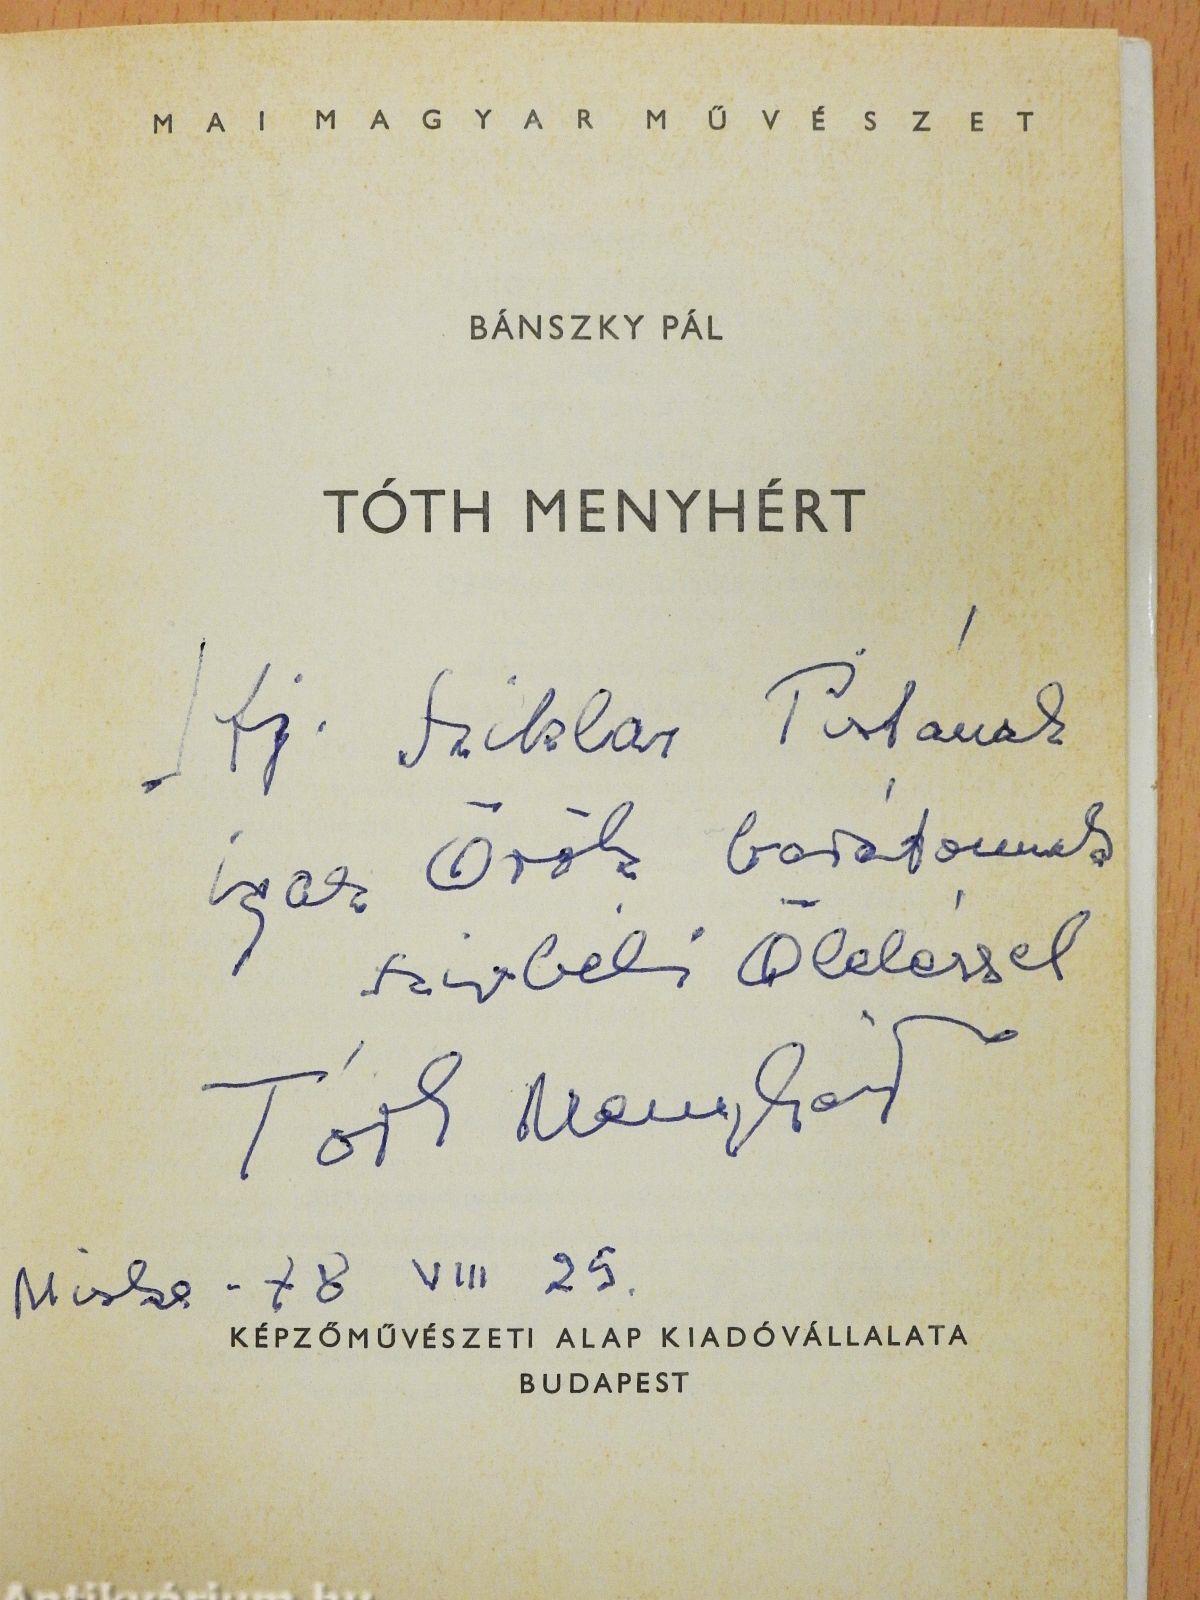 MAI MAGYAR MŰVÉSZET
BÁNSZKY PÁL
TÓTH MENYHÉRT
Ifj. Sziklai Pistának
igaz Örök barátomnak
szívbéli Öleléssel
Tóth Menyhért
Miske - 78 VIII 25.
KÉPZŐMŰVÉSZETI ALAP KIADÓVÁLLALATA
BUDAPEST
Antikvárium.hu